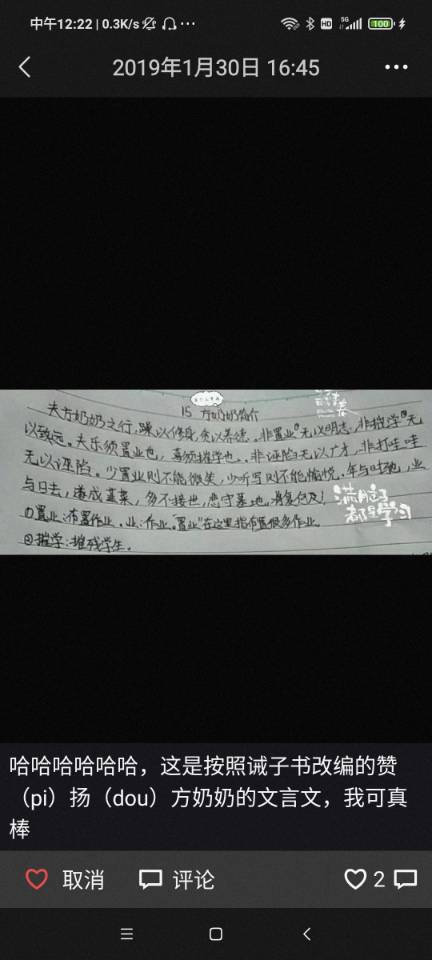 中午12:22 | 0.3K/s
HD 5G 100
2019年1月30日 16:45
15 方奶奶简介
夫方奶奶之行,躁以修身,贪以养德。非置业①无以明志,非摧学②无
以致远。夫乐须置业也,喜须摧学也。非诬陷无以广才,非打哇哇
无以诬陷。少置业则不能微笑,少听写则不能愉悦。年与时驰,业
与日去,遂成韭菜,多不接世,悲守墓地,将复何及!
①置业:布置作业。业:作业。“置业”在这里指布置很多作业。
②摧学:摧残学生。
满脑子
都是学习
哈哈哈哈哈哈,这是按照诫子书改编的赞
(pi)扬(dou)方奶奶的文言文,我可真
棒
取消 评论 2